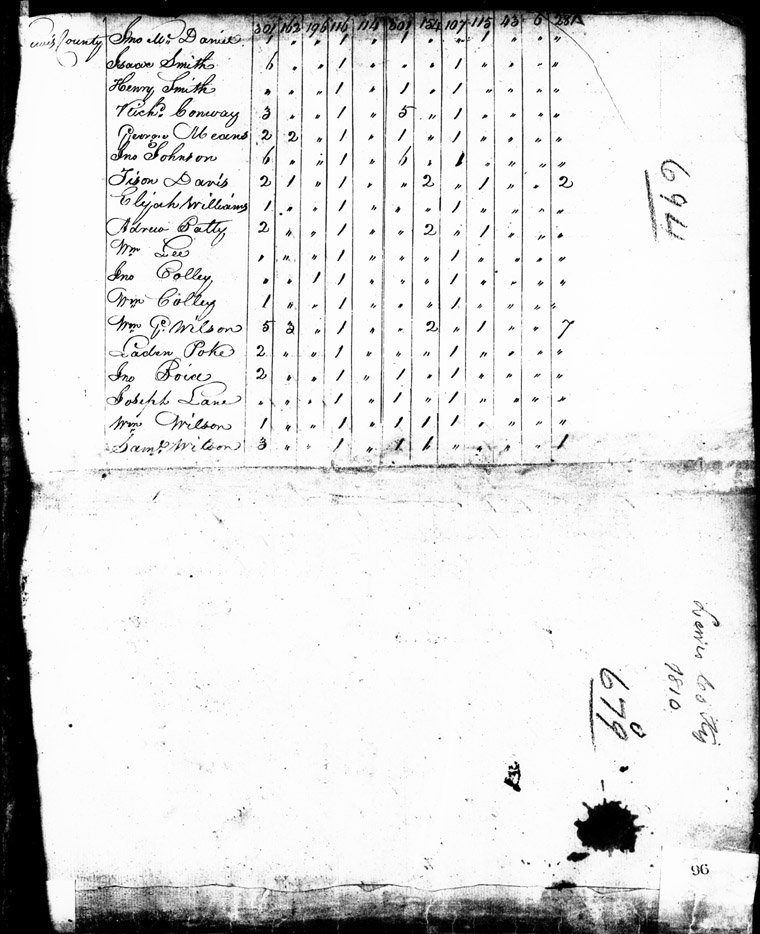 301 162 196 116 114 501 154 107 115 43 6 281
County Jno Mc Daniel 1 " " 1 " 1 " " 1 " " "
Isaac Smith 6 " " 1 " " " 1 " " " "
Henry Smith " " " 1 " 1 " 1 " " " "
Richd Conway 3 " " 1 " 5 " 1 " " " "
George Means 2 2 " 1 " 1 " 1 " " " "
Jno Johnson 6 " " 1 " 6 " 1 " " " "
Tison Davis 2 1 " 1 " " 2 " 1 " " 2
Elijah Williams 1 " " 1 " " " 1 " " " "
Adrew Batty 2 " " 1 " " 2 " 1 " " "
Wm Lee " " " 1 " " " 1 " " " "
Jno Colley " " 1 1 " " " 1 " " " "
Wm Colley 1 " " 1 " " " 1 " " " "
Wm Gc Wilson 5 3 " 1 " " 2 " 1 " " 7
Laden Poke 2 " " 1 " " " 1 " " " "
Jno Boice 2 " " 1 " 1 " 1 " " " "
Joseph Lane " " " 1 " 1 " 1 " " " "
Wm Wilson 1 " " 1 " 1 1 1 " " " "
Saml Wilson 3 " " 1 " 1 1 " " " " 1
694
Lewis Co Ky
1810
679
96